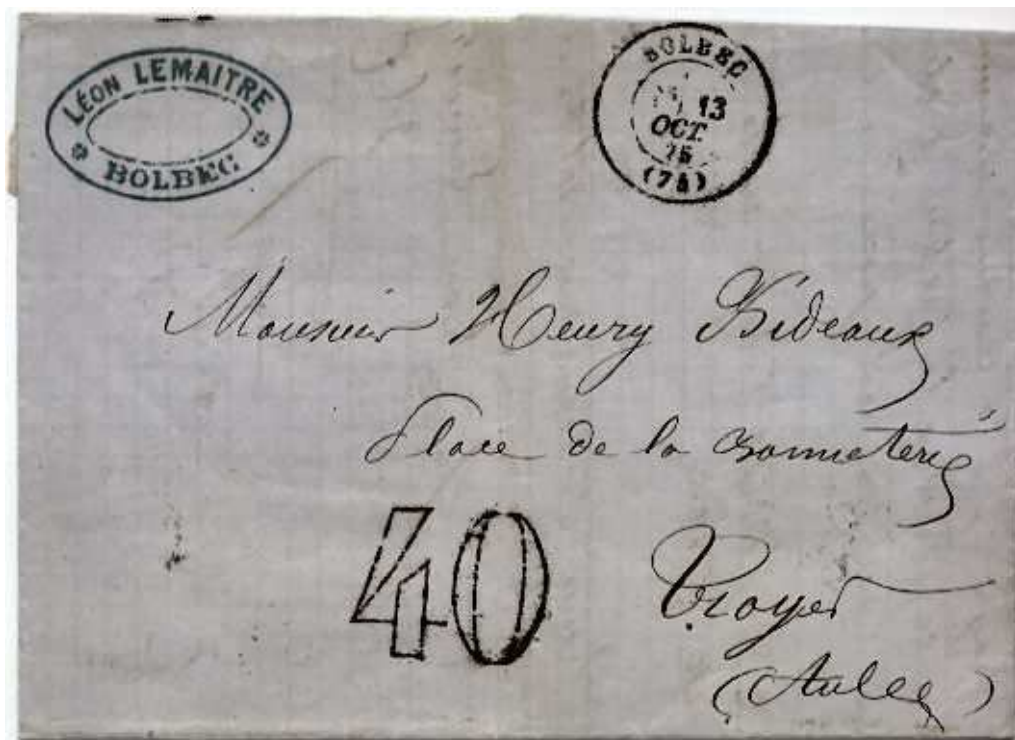 LÉON LEMAITRE
BOLBEC
BOLBEC
13
OCT.
75
(74)
Monsieur Henry Bideaux
Place de la Bonneterie
40
Troyes
(Aube)